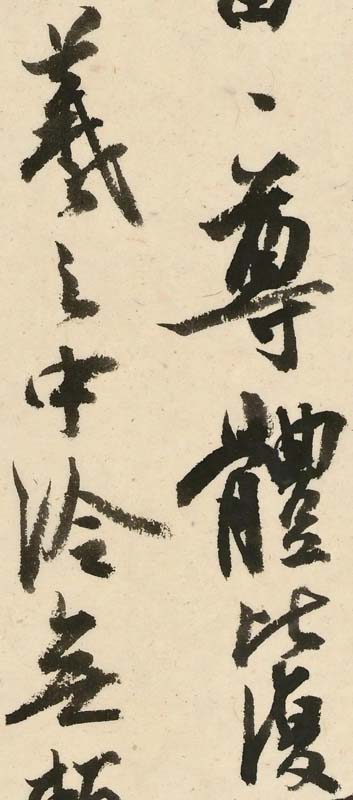 尊體比復
羲之中冷無賴